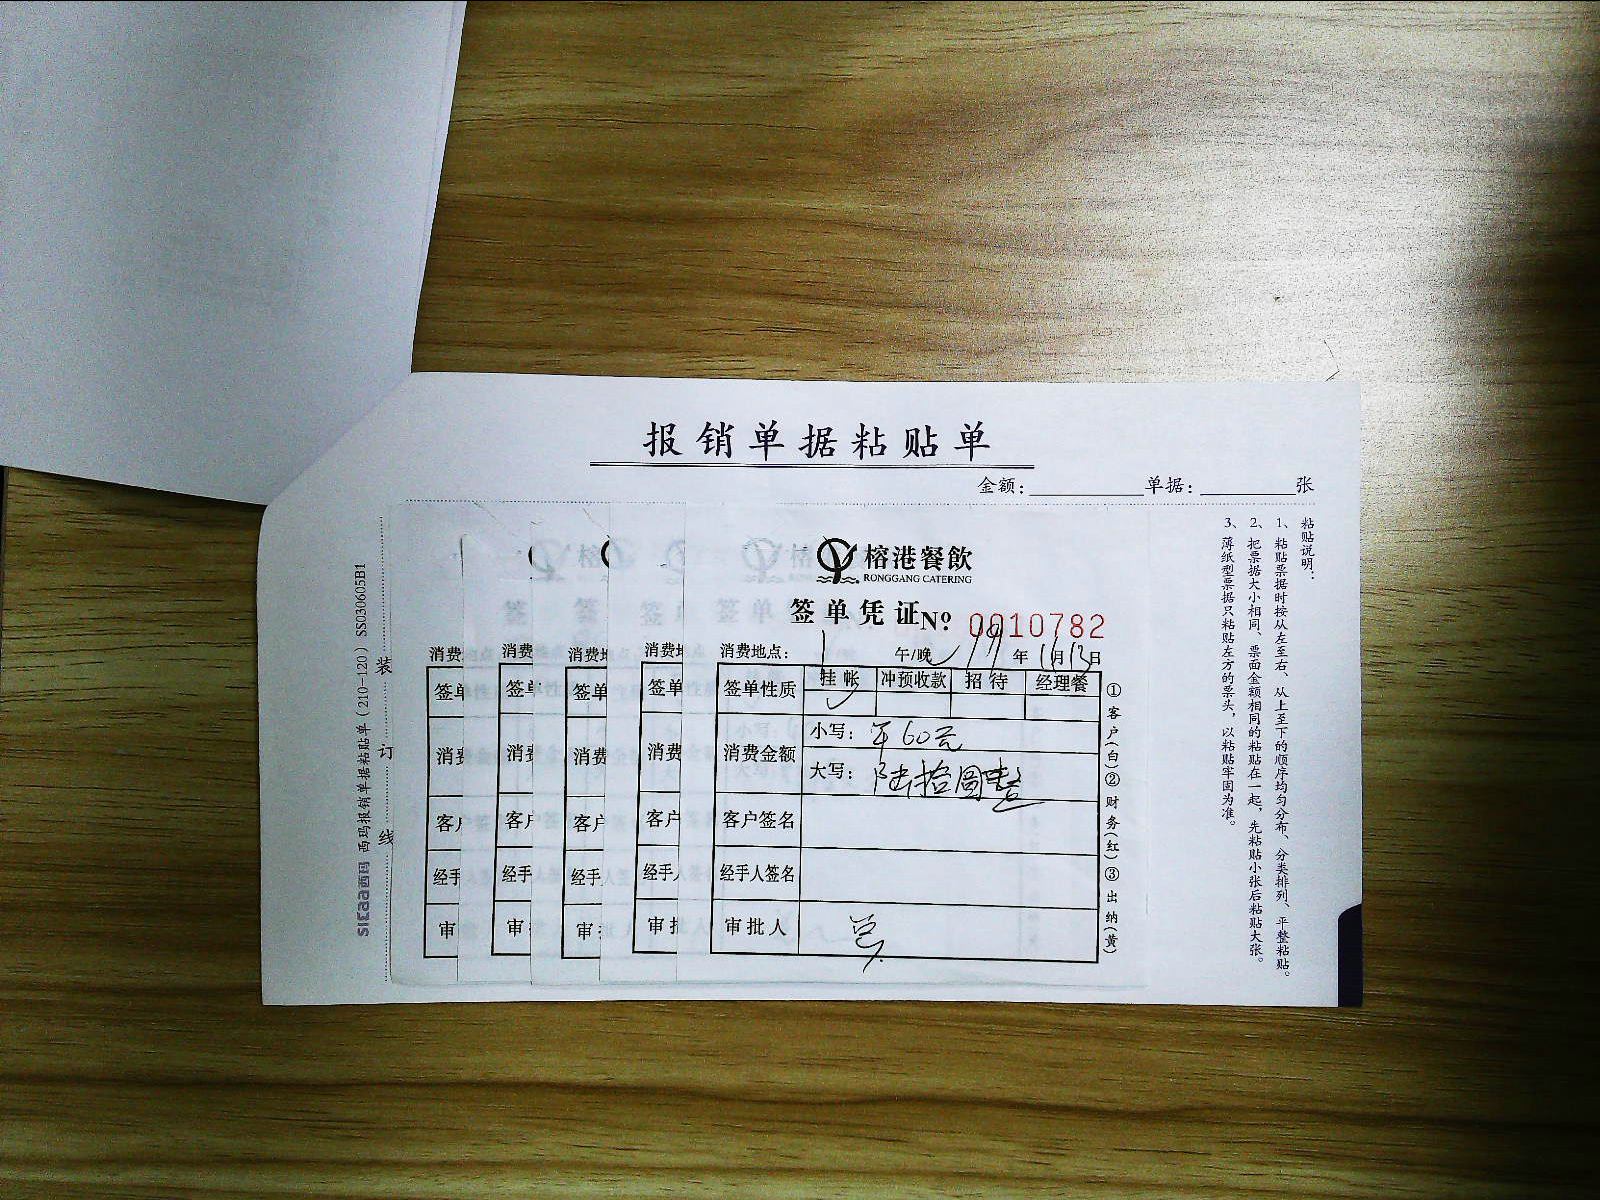 报销单据粘贴单
金额：__________单据：________张
榕港餐飲
RONGGANG CATERING
签单凭证№ 0010782
消费地点： 午/晚 19年11月13日
签单性质 挂帐 冲预收款 招待 经理餐
消费金额 小写：午60元
大写：陆拾圆整
客户签名
经手人签名
审批人
①客户(白)②财务(红)③出纳(黄)
消费
签单
消费
客户
经手
审
消费
签单
消费
客户
经手
审
消费
签单
消费
客户
经手
审
消费
签单
消费
客户
经手
审
粘贴说明：
1、粘贴票据时按从左至右、从上至下的顺序均匀分布、分类排列、平整粘贴。
2、把票据大小相同、票面金额相同的粘贴在一起，先粘贴小张后粘贴大张。
3、薄纸型票据只粘贴左方的票头，以粘贴牢固为准。
装订线
sicaa西玛 西玛报销单据粘贴单（210-120）SS030605B1